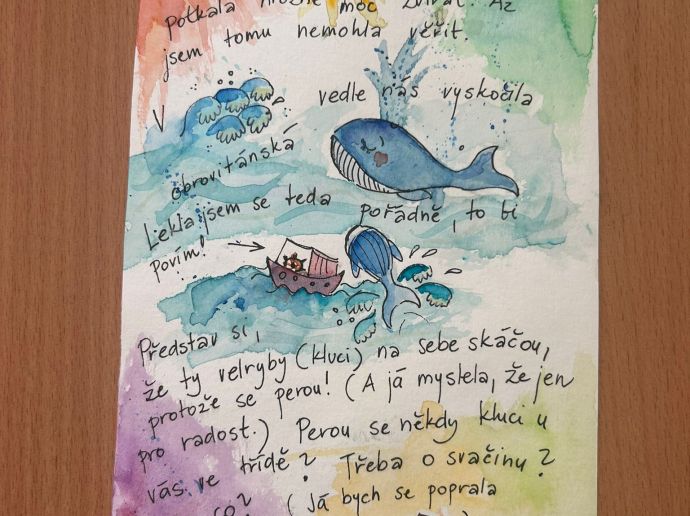 potkala hrozně moc zvířat. Až
jsem tomu nemohla věřit.
V vedle nás vyskočila
obrovitánská
Lekla jsem se teda pořádně, to ti
povím!
Představ si,
že ty velryby (kluci) na sebe skáčou,
protože se perou! (A já myslela, že jen
pro radost.) Perou se někdy kluci u
vás ve třídě? Třeba o svačinu?
(Já bych se poprala